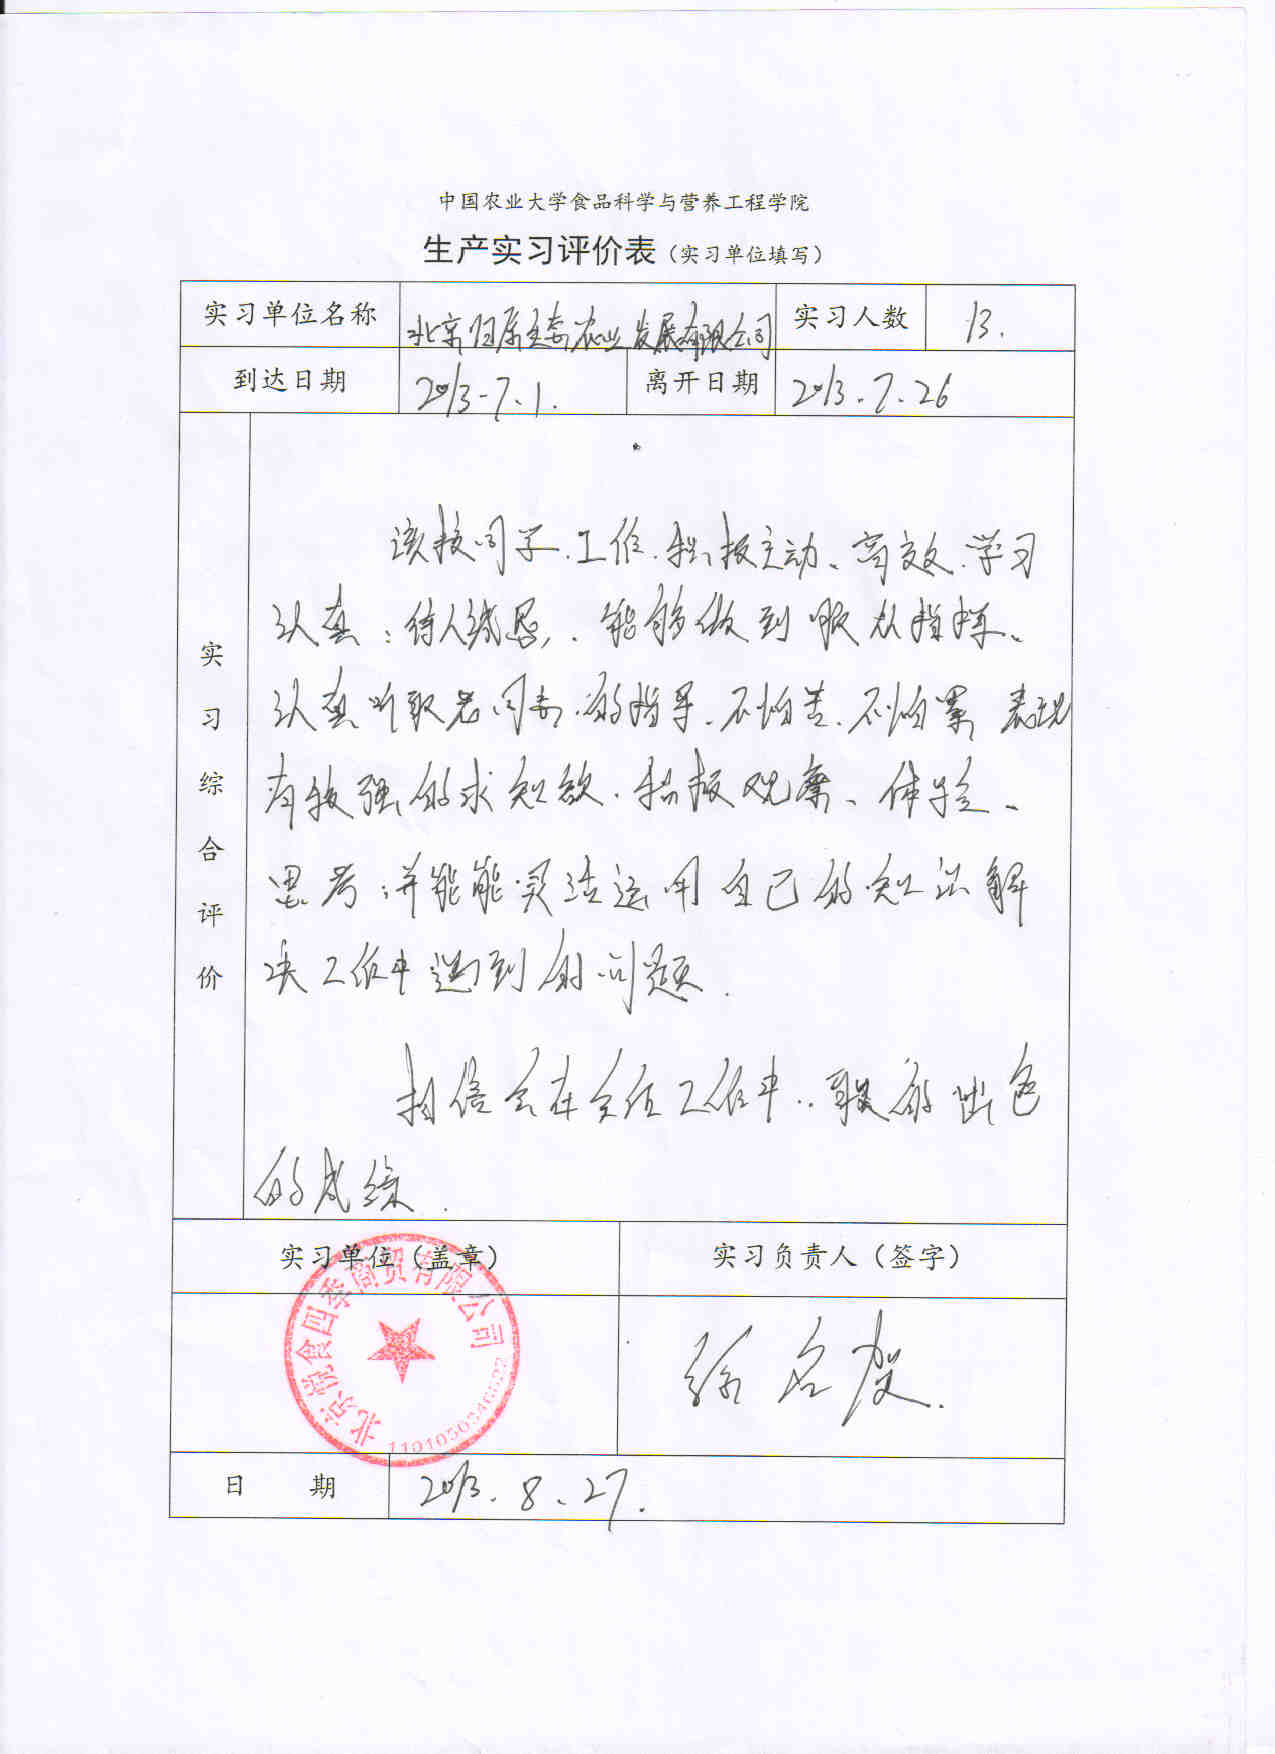 中国农业大学食品科学与营养工程学院
生产实习评价表（实习单位填写）
实习单位名称 北京归原生态农业发展有限公司 实习人数 13.
到达日期 2013-7.1. 离开日期 2013.7.26
实习综合评价
该校同学.工作.积极主动、高效.学习
认真；待人诚恳，.能够做到服从指挥、
认真听取老同事.的指导.不怕苦.不怕累 表现
有较强的求知欲.积极观察、体验、
思考；并能能灵活运用自己的知识解
决工作中遇到的问题.
相信会在今后工作中..取的出色
的成绩.
实习单位（盖章） 实习负责人（签字）
北京悦食四季商贸有限公司
徐名贺.
日 期 2013.8.27.